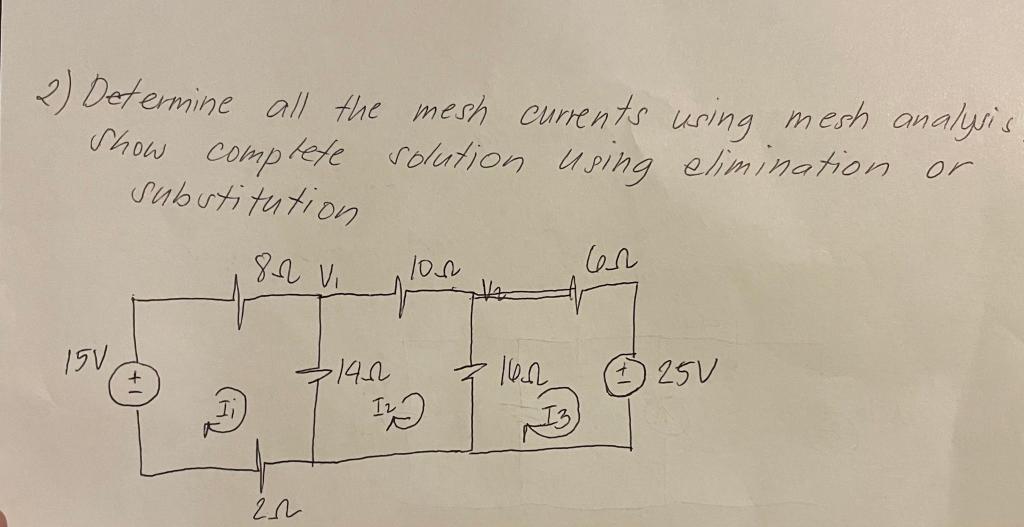 2) Determine all the mesh currents using mesh analysis
Show complete solution using elimination or
substitution
8Ω V1 10Ω V2 6Ω
15V + - 14Ω 16Ω + - 25V
I1 I2 I3
2Ω